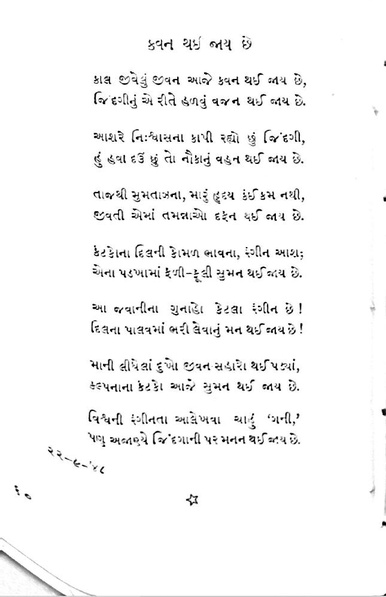 કવન થઈ જાય છે
કાલ જીવેલું જીવન આજે કવન થઈ જાય છે,
જિંદગીનું એ રીતે હળવું વજન થઈ જાય છે.
આશરે નિઃશ્વાસના કાપી રહ્યો છું જિંદગી,
હું હવા દઉં છું તો નૌકાનું વહન થઈ જાય છે.
તાજથી સુમતાઝના, મારું હૃદય કંઈ કમ નથી,
જીવતી એમાં તમન્નાઓ દફન થઈ જાય છે.
કંટકોના દિલની કોમળ ભાવના, રંગીન આશ;
એના પડખામાં ફળી-ફૂલી સુમન થઈ જાય છે.
આ જવાનીના ગુનાહો કેટલા રંગીન છે !
દિલના પાલવમાં ભરી લેવાનું મન થઈ જાય છે !
માની લીધેલાં દુખો જીવન સહારો થઈ પડ્યાં,
કલ્પનાના કંટકો આજે સુમન થઈ જાય છે.
વિશ્વની રંગીનતા આલેખવા ચાહું 'ગની,'
પણ અજાણ્યે જિંદગાની પર મનન થઈ જાય છે.
૨૨-૯-'૪૮
૬૦